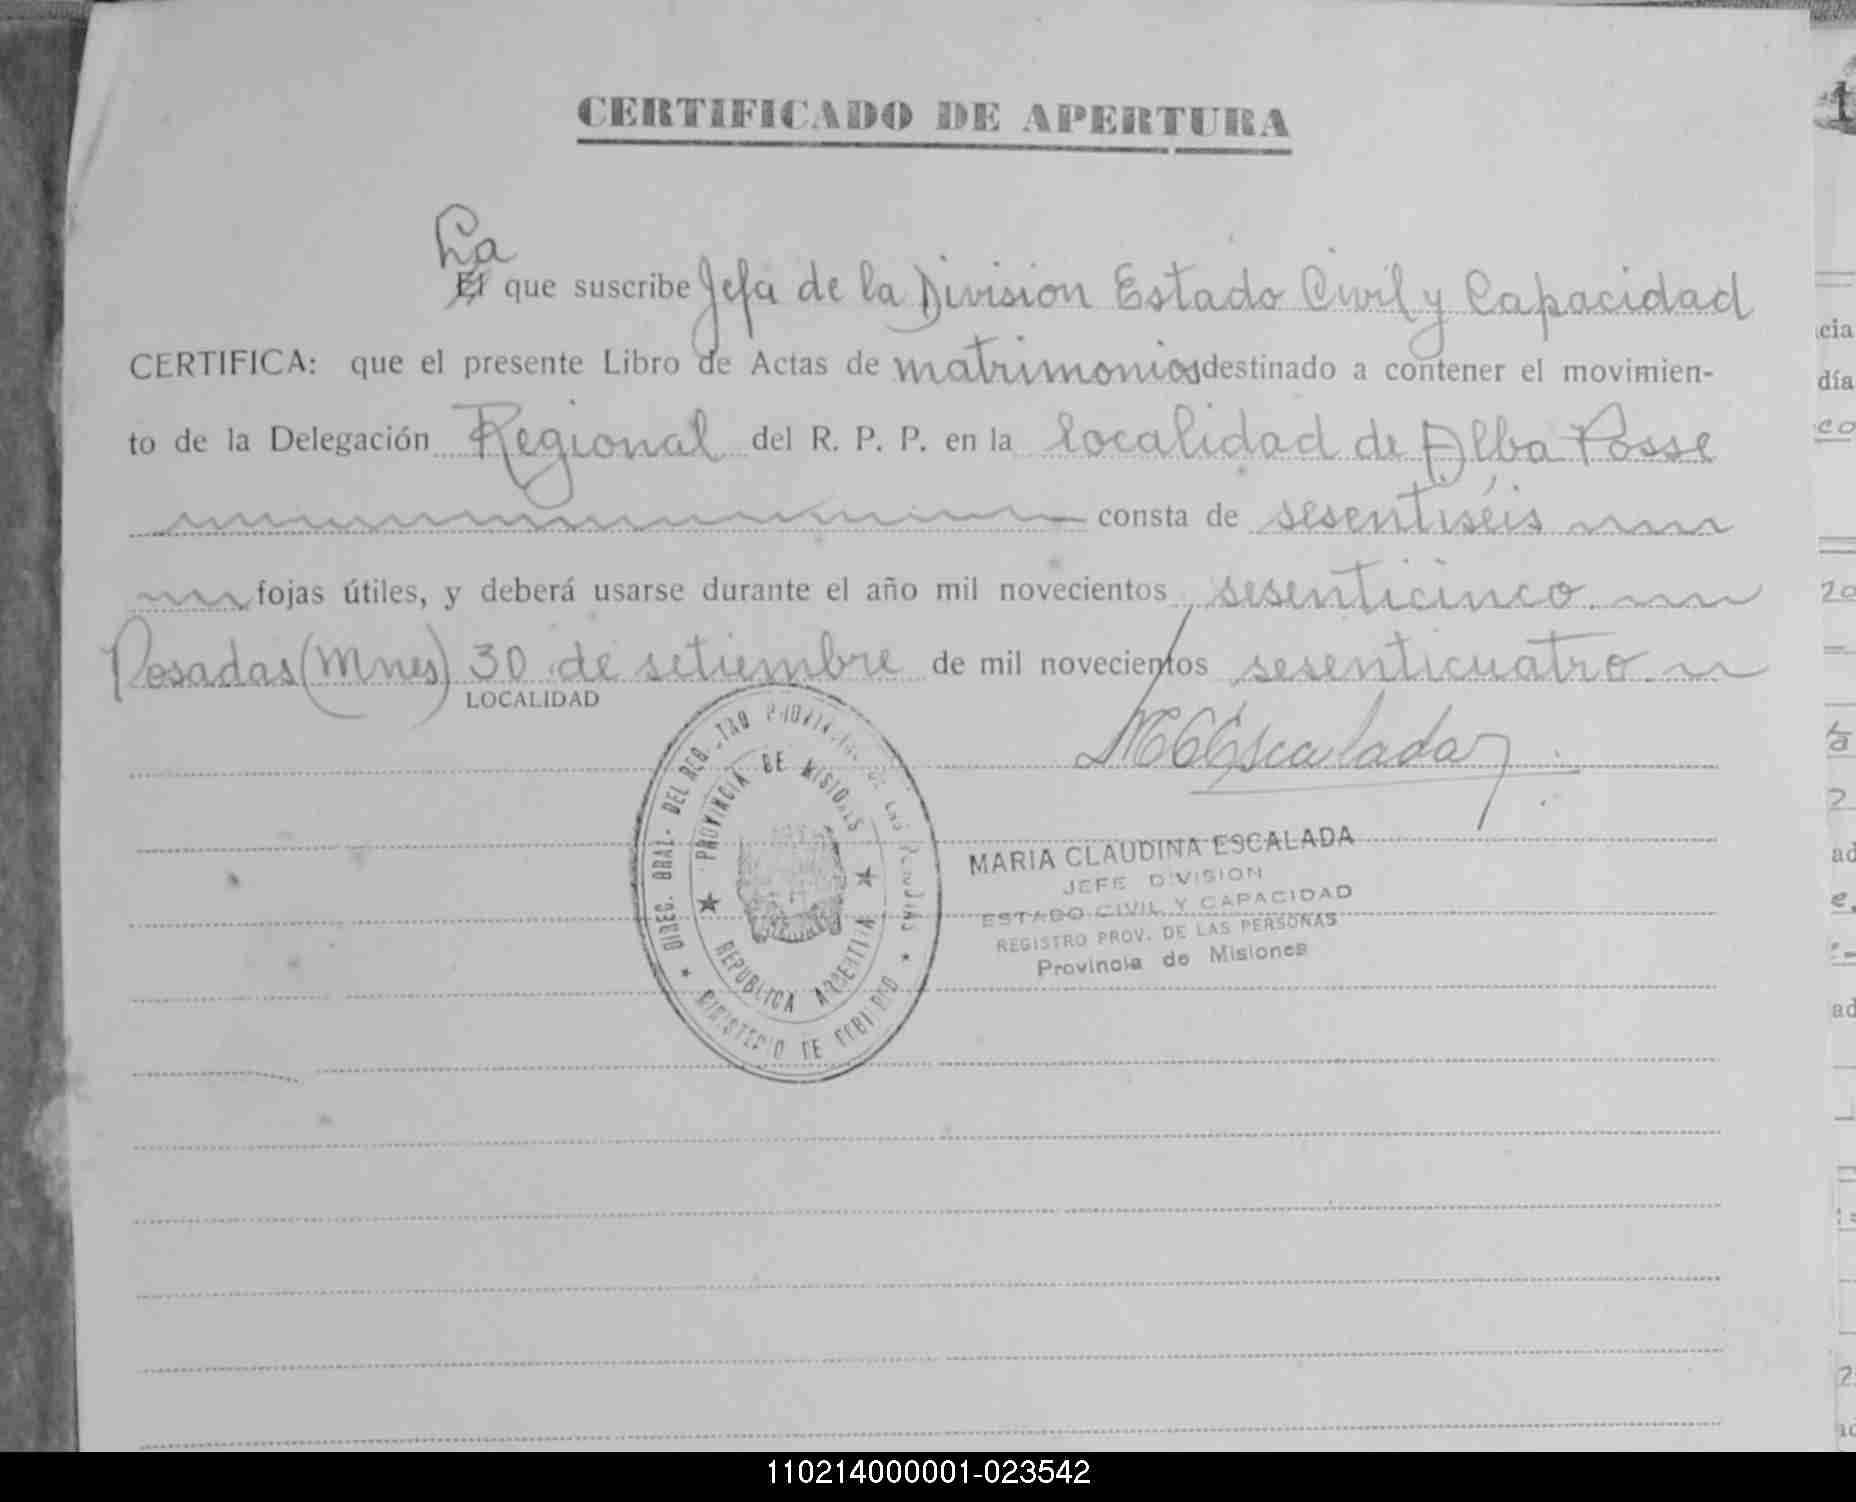 CERTIFICADO DE APERTURA
La
El que suscribe Jefa de la Division Estado Civil y Capacidad
CERTIFICA: que el presente Libro de Actas de matrimonios destinado a contener el movimien-
to de la Delegación Regional del R. P. P. en la localidad de Alba Posse
consta de sesentiséis
fojas útiles, y deberá usarse durante el año mil novecientos sesenticinco
Posadas (Mnes) 30 de setiembre de mil novecientos sesenticuatro
LOCALIDAD
MCEscalada
DIREC. GRAL. DEL REG PROVINCIAL DE LAS PERSONAS
PROVINCIA DE MISIONES
REPUBLICA ARGENTINA
MINISTERIO DE GOBIERNO
MARIA CLAUDINA ESCALADA
JEFE DIVISION
ESTADO CIVIL Y CAPACIDAD
REGISTRO PROV. DE LAS PERSONAS
Provincia de Misiones
cia
día
co
20
ad
ad
110214000001-023542